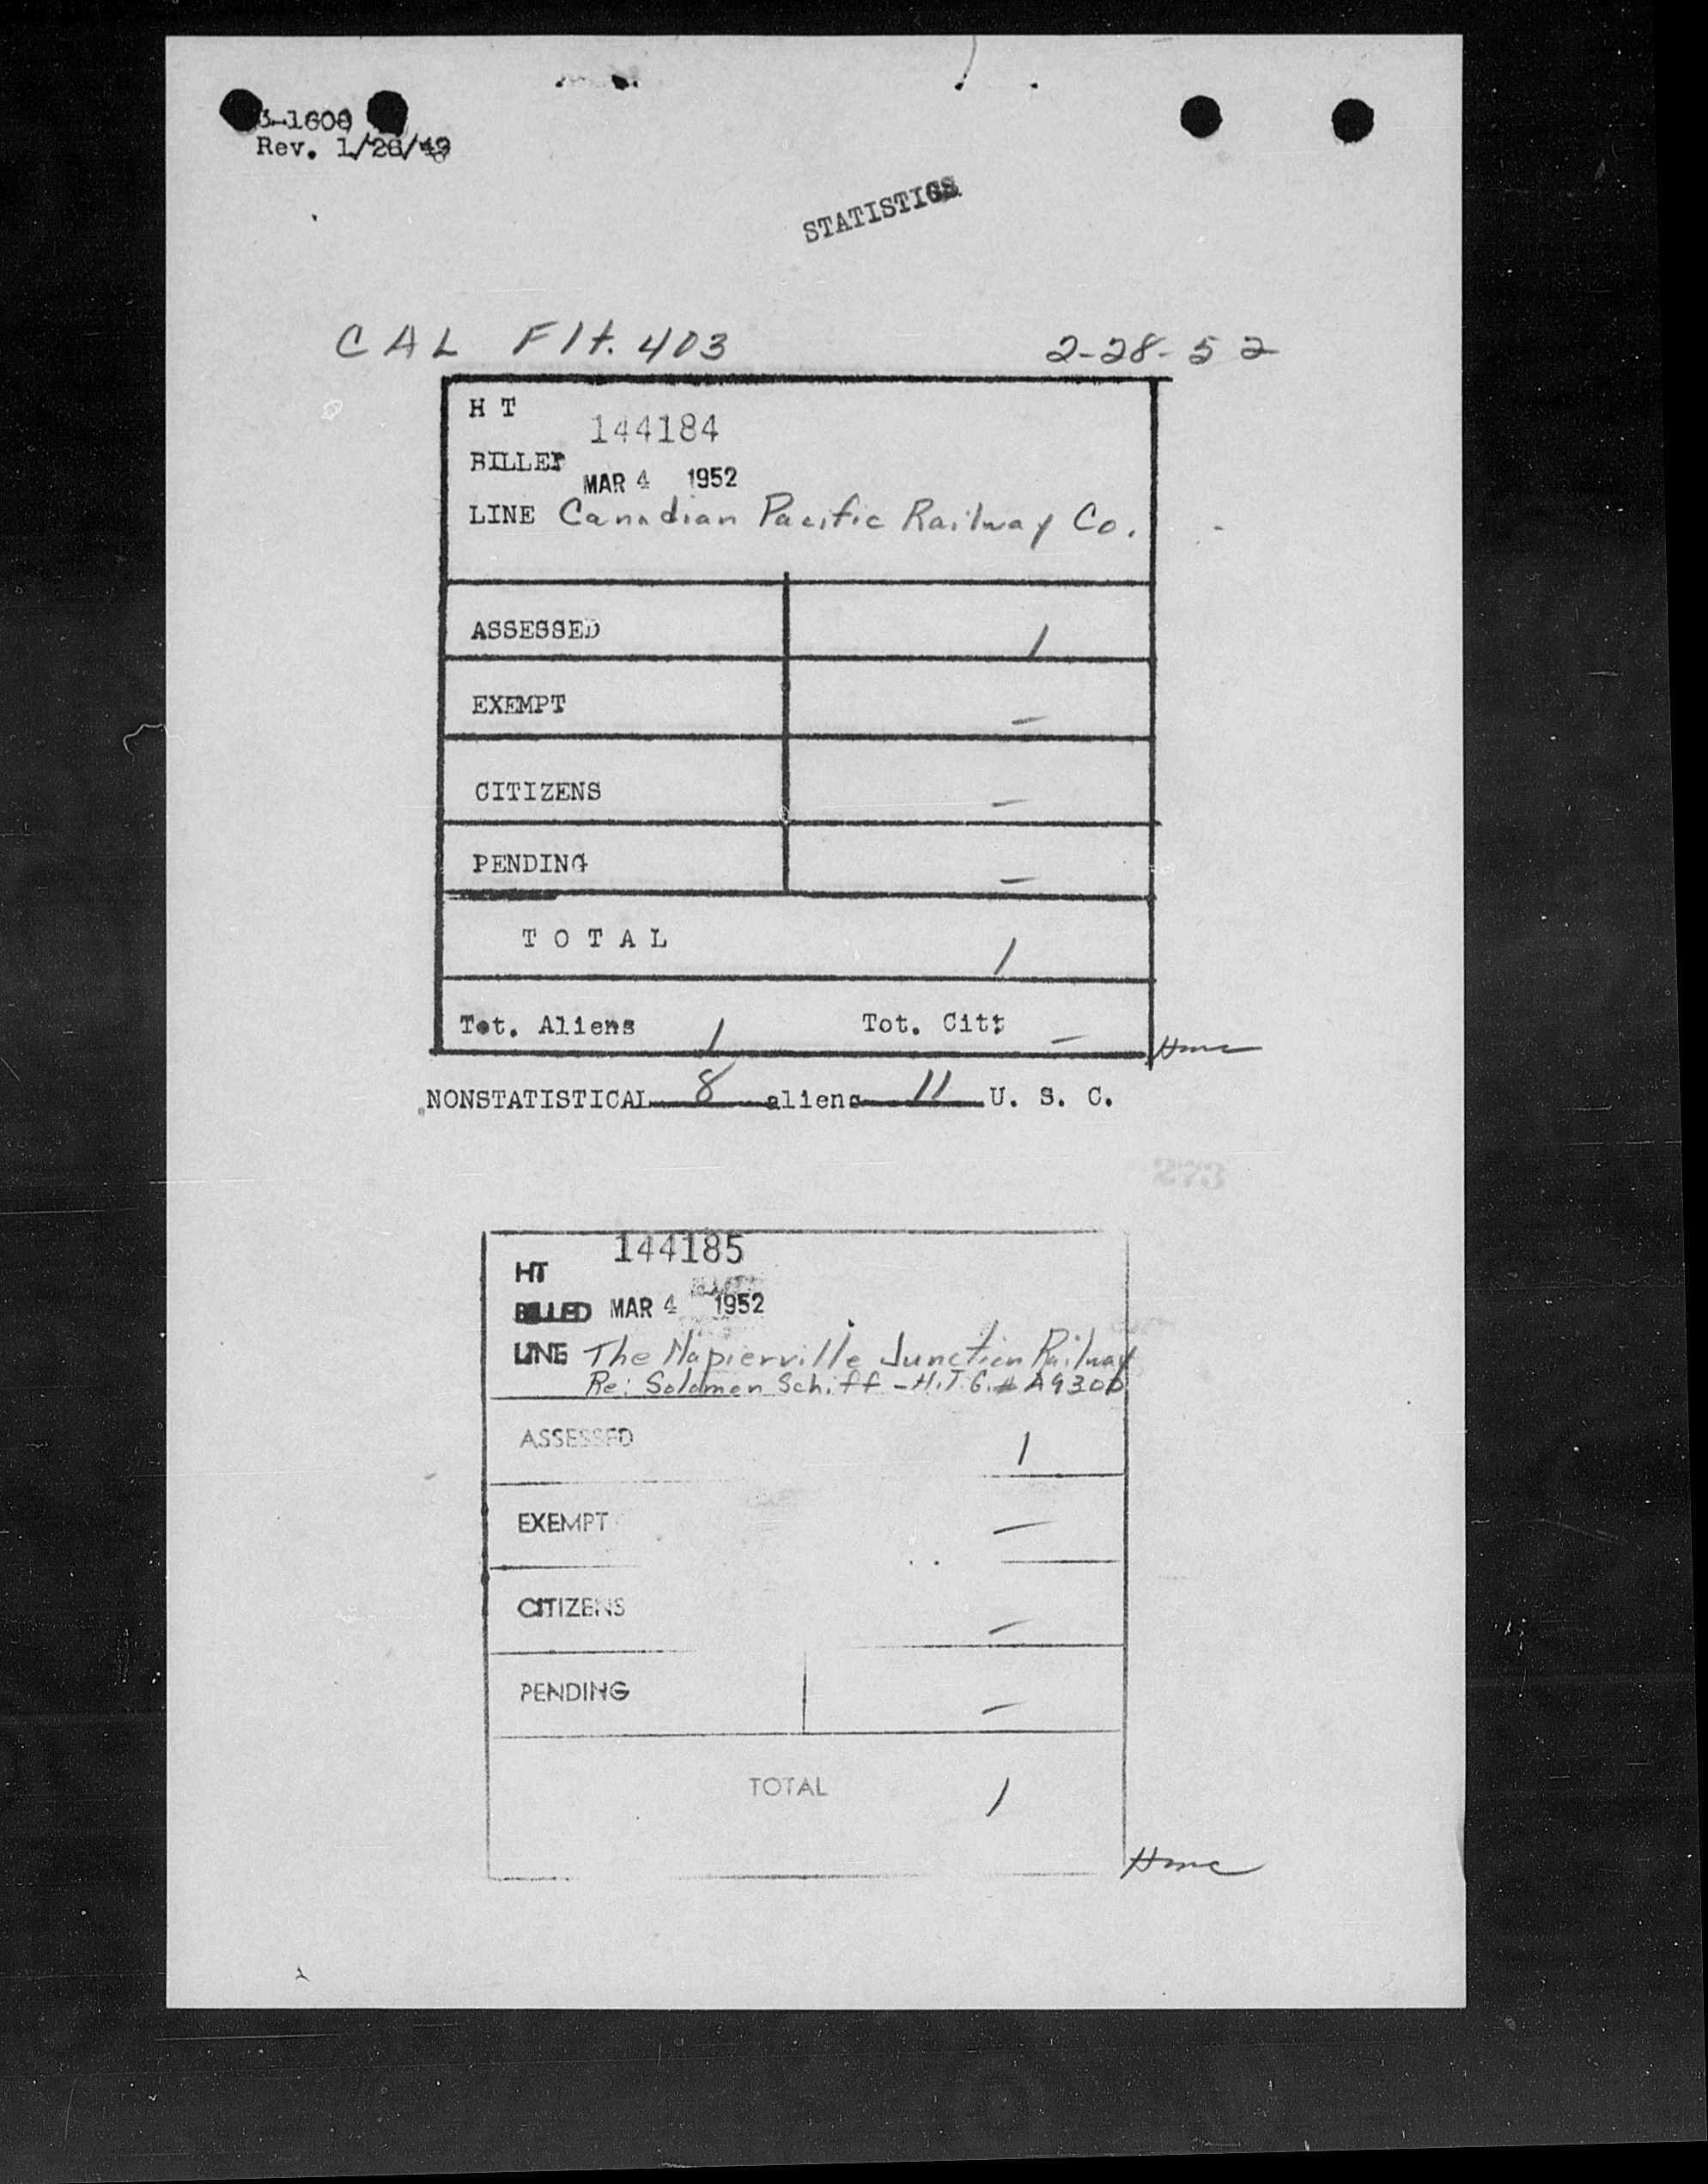 3-1608
Rev. 1/28/49
STATISTICS
CAL Flt. 403 2-28-52
H T 144184
BILLED MAR 4 1952
LINE Canadian Pacific Railway Co.
ASSESSED 1
EXEMPT –
CITIZENS –
PENDING –
T O T A L 1
Tot. Aliens 1 Tot. Citz –
NONSTATISTICAL 8 aliens 11 U. S. C.
273
HT 144185
BILLED MAR 4 1952
LINE The Napierville Junction Railway
Re: Solomon Schiff - H.T.G. # A9300
ASSESSED 1
EXEMPT –
CITIZENS –
PENDING –
TOTAL 1